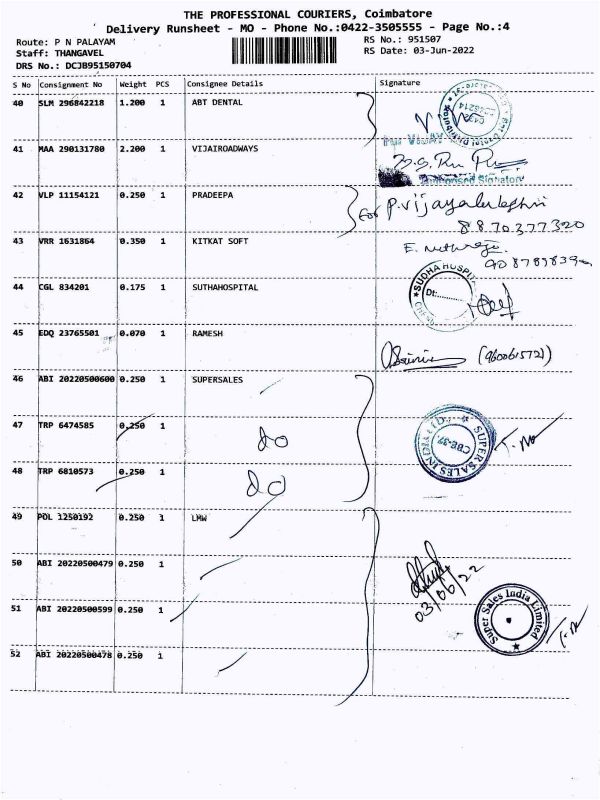 THE PROFESSIONAL COURIERS, Coimbatore
Delivery Runsheet - MO - Phone No.:0422-3505555 - Page No.:4
Route: P N PALAYAM
RS No.: 951507
Staff: THANGAVEL
RS Date: 03-Jun-2022
DRS No.: DCJB95150704
S No Consignment No Weight PCS Consignee Details Signature
40 SLM 296842218 1.200 1 ABT DENTAL
41 MAA 290131780 2.200 1 VIJAIROADWAYS
Authorised Signatory
42 VLP 11154121 0.250 1 PRADEEPA
For P.vijayalakshmi
8870377320
43 VRR 1631864 0.350 1 KITKAT SOFT
44 CGL 834201 0.175 1 SUTHAHOSPITAL
SUDHA HOSPITA
Dt:
45 EDQ 23765501 0.070 1 RAMESH
(9600615721)
46 ABI 20220500600 0.250 1 SUPERSALES
47 TRP 6474585 0.250 1
do
SUPER SALES INDIA LTD.
CBE-37
48 TRP 6810573 0.250 1
do
49 POL 1250192 0.250 1 LMW
50 ABI 20220500479 0.250 1
03/06/22
51 ABI 20220500599 0.250 1
Super Sales India Limited
52 ABI 20220500478 0.250 1